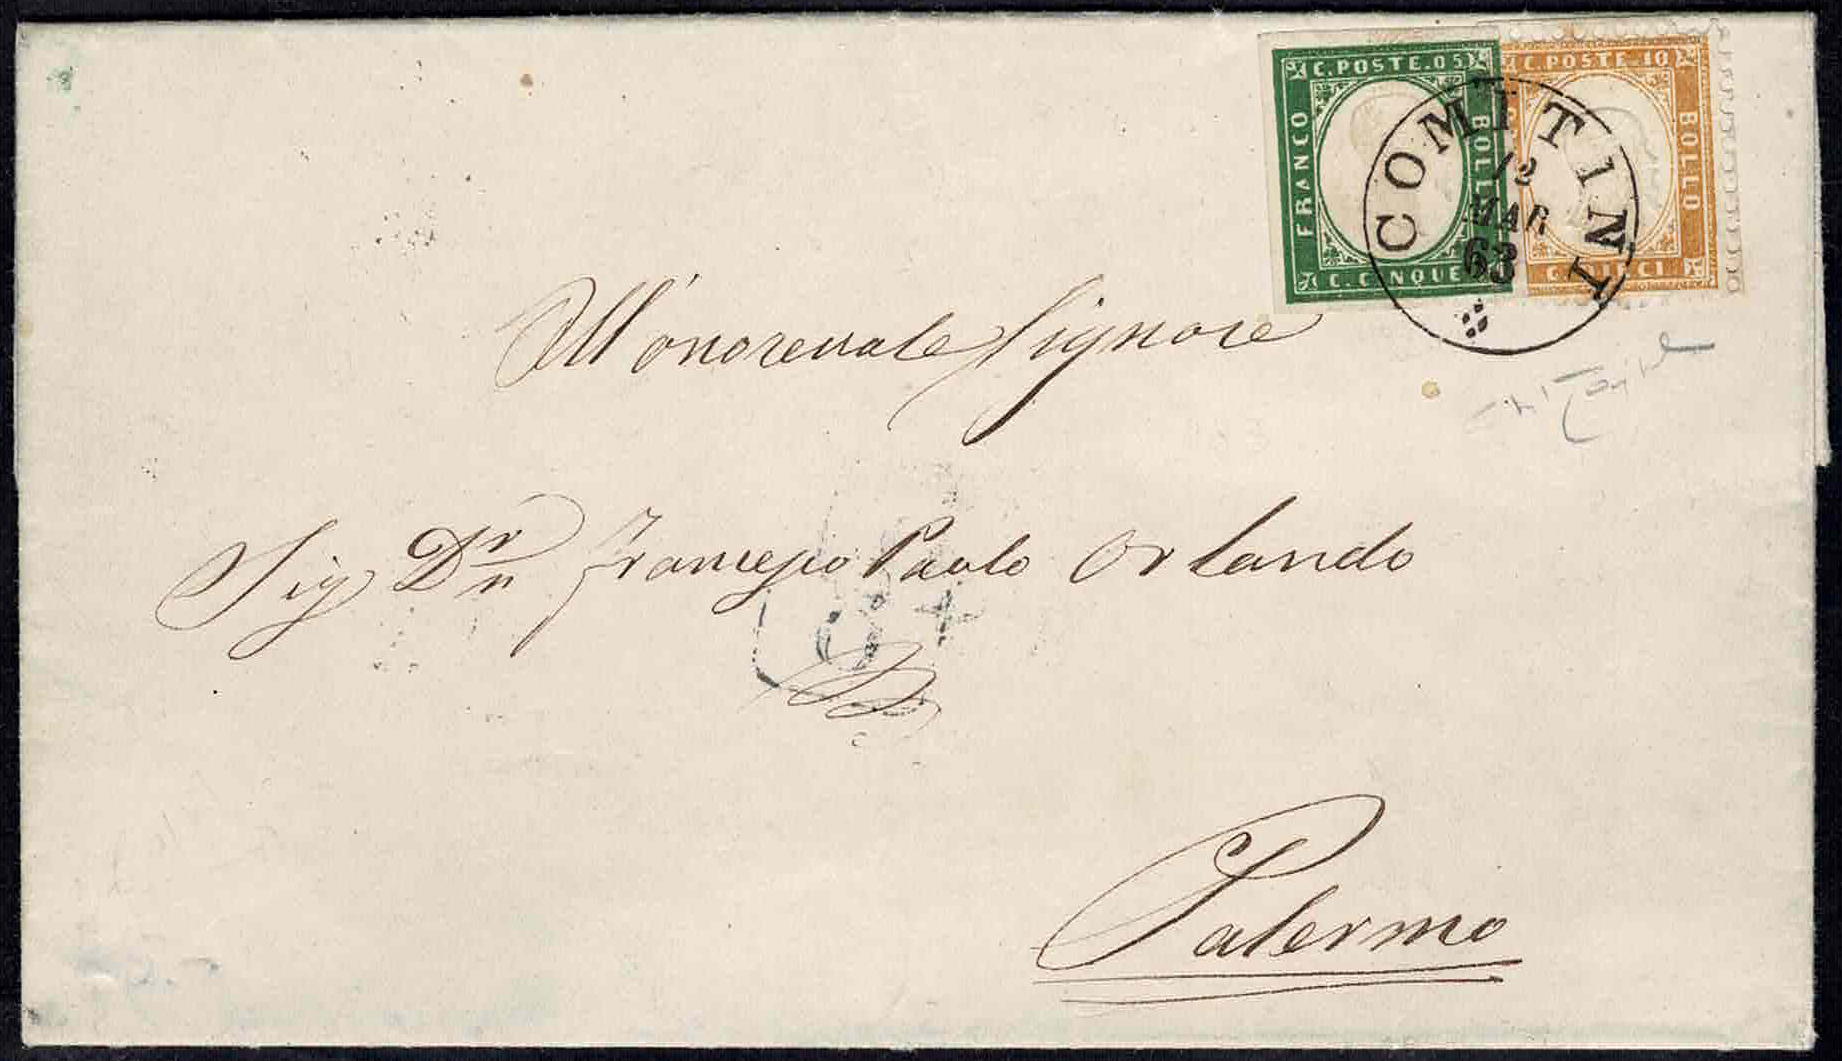 C. POSTE. 05
FRANCO
BOLLO
C. CINQUE
C. POSTE. 10
BOLLO
C. DIECI
COMITINI
12
MAR
63
All'onorevole Signore
Sig Dn Francesco Paolo Orlando
Palermo